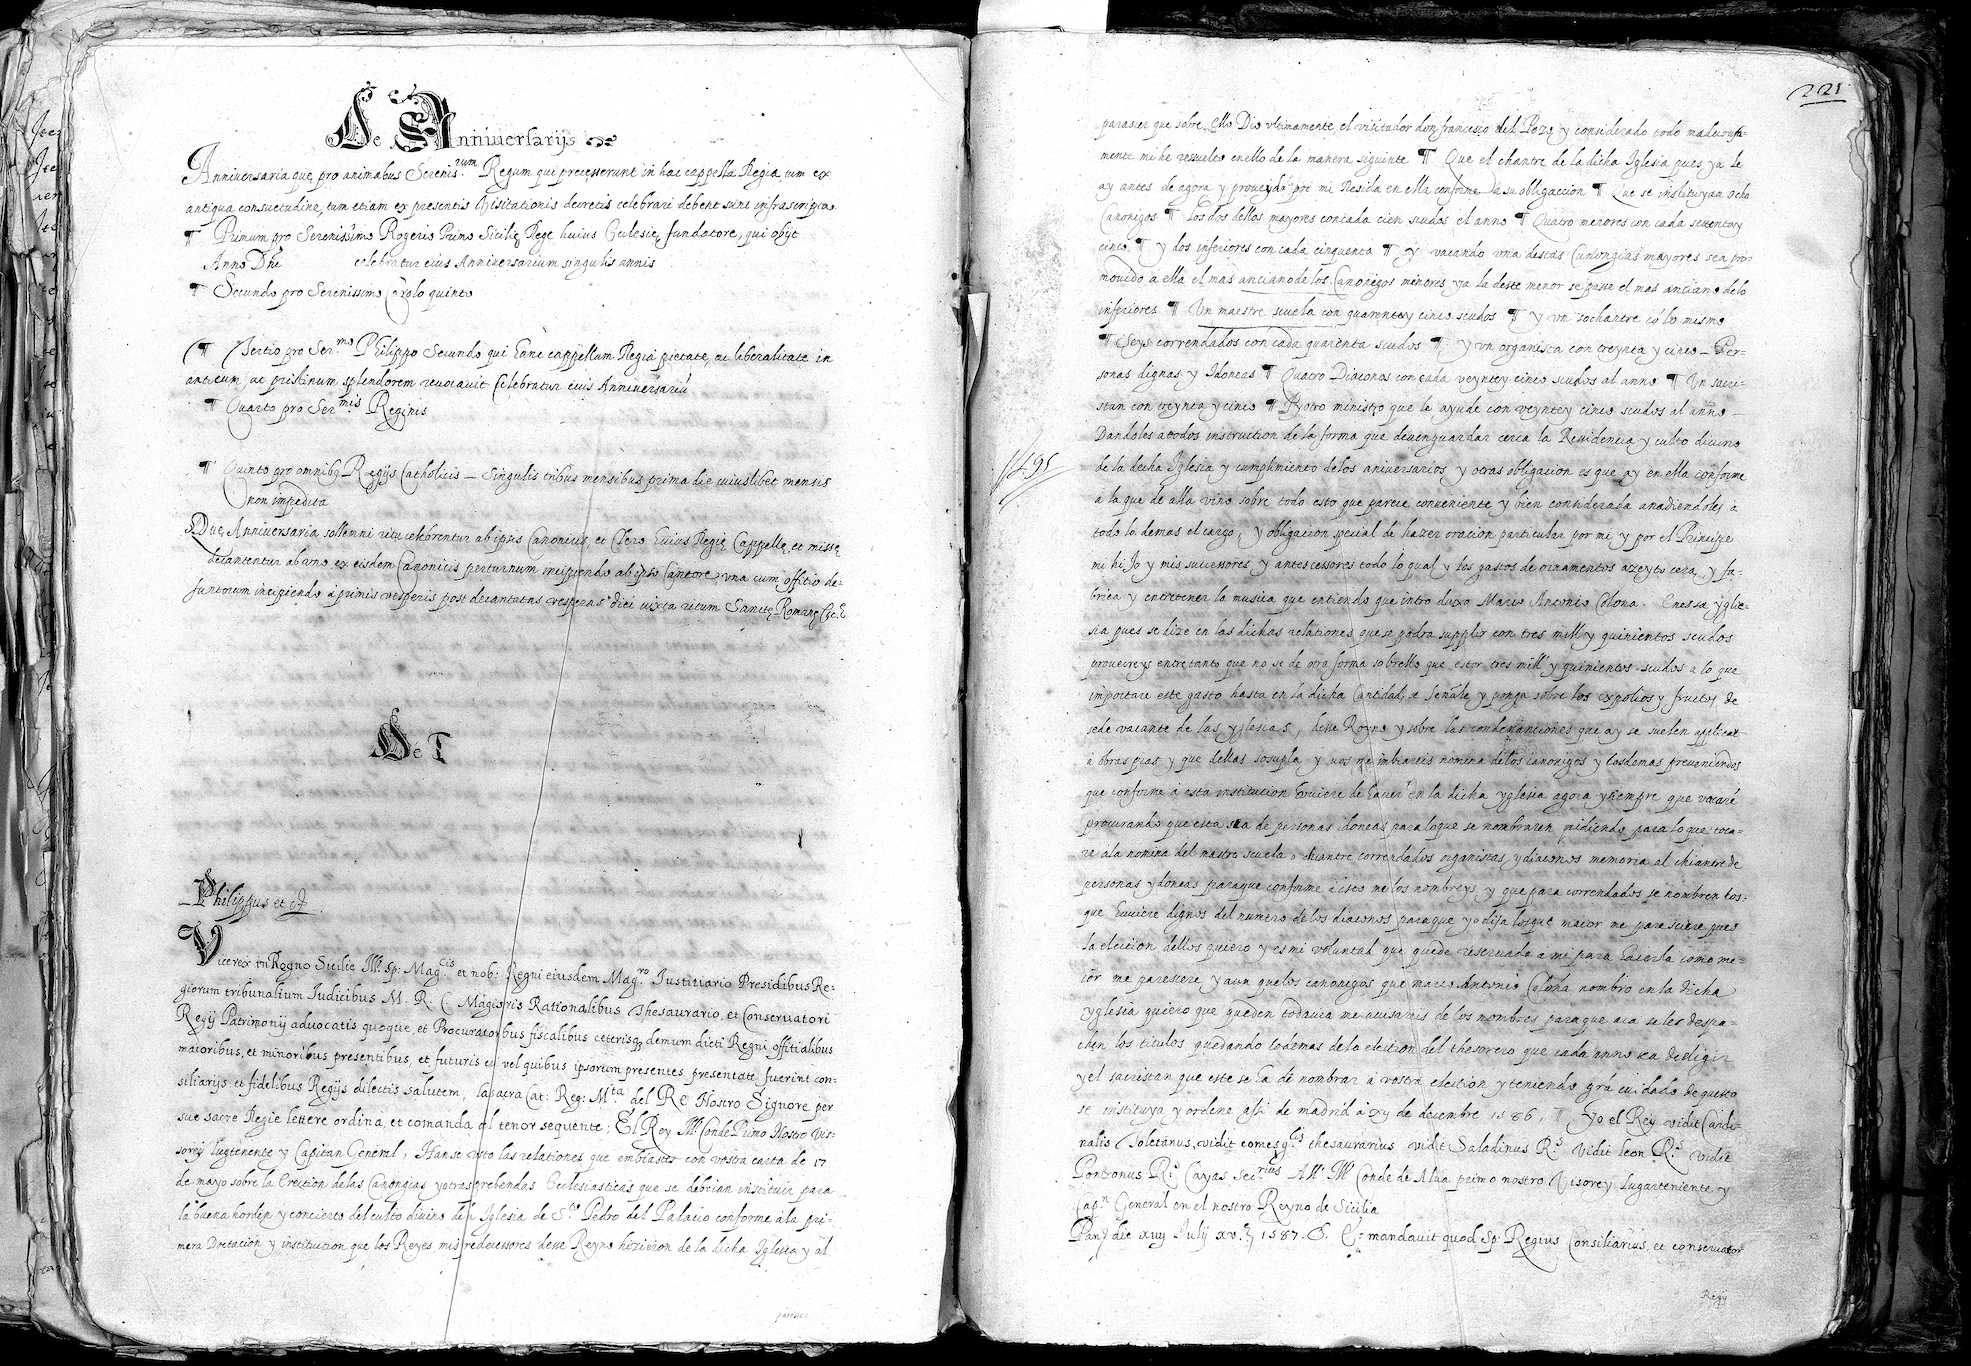 De Anniuersarijs
Anniuersaria que pro animabus Serenis.rum Regum qui precesserunt in hac cappella Regia tum ex
antiqua consuetudine, tum etiam ex presentis Visitationis decretis celebrari debent sunt infrascripta
¶ Primum pro Serenissimo Rogerio Primo Sicilię Rege huius Eclesię fundatore, qui obijt
Anno Dñi celebratur eius Anniuersarium singulis annis
¶ Secundo pro Serenissimo Carolo quinto
¶ Tertio pro Ser.mo Philippo Secundo qui hanc cappellam Regia pietate, ac liberalitate in
anticum, ac pristinum splendorem reuocauit Celebratur eius Anniuersariũ
¶ Quarto pro Ser.mis Reginis
¶ Quinto pro omnibq Regijs Catholicis – Singulis tribus mensibus prima die cuiuslibet mensis
non impedita
Quę Anniuersaria sollemni ritu celebrentur ab ipsis Canonicis, et Clero huius Regię Cappellę, et missę
decantentur ab uno ex eisdem Canonicis per turnum incipiendo ab ipso Cantore una cum offitio de-
functorum incipiendo a primis vesperis post decantatas vesperas diei iuxta ritum Sanctę Romanę Ecc.ę
De T
Philippus et c̃
Vicerex in Regno Sicilie Ill. sp: Mag.cis et nob: Regni eiusdem Mag.ro Iustitiario Presidibus Re-
giorum tribunalium Iudicibus M. R. C. Magistris Rationalibus Thesaurario, et Conseruatori
Regij Patrimonij aduocatis quoque, et Procuratoribus fiscalibus ceterisq demum dicti Regni offitialibus
maioribus, et minoribus presentibus, et futuris cui vel quibus ipsorum presentes presentate fuerint con-
siliarijs et fidelibus Regijs dilectis salutem, la sacra Cat: Reg: M.ta del Re Nostro Signore per
sue sacre Regie lettere ordina, et comanda al tenor sequente; El Rey Ill. Conde Primo Nostro Vis-
sorey lugtenente y Capitan General, Hanse visto las relationes que embiastes con vostra carta de 17
de mayo sobre la Erection de las Canongias y otras prebendas Eclesiasticas que se debrian instituir para
la buena horden y concierto del culto diuino de la Iglesia de S.to Pedro del Palacio conforme à la pri-
mera Dotacion y institucion que los Reyes mis predecessores desse Reyno hizieron de la dicha Iglesia y al
parescer
221
parascer que sobre ello Dio vltimamente el visitador don francesco del Pozo y considerado todo madurapla-
mente mi he resuelto en ello de la manera siguinte ¶ Que el chantre de la dicha Iglesia pues ya le
ay antes de agora y proueydo por mi Resida en ella conforme a su obligacion ¶ Que se instituyan ocho
Canonigos ¶ los dos dellos mayores con cada cien scudos el anno ¶ Quatro menores con cada settentay
cinco ¶ y dos inferiores con cada cinquenta ¶ y vacando vna destas Canongias mayores sea pro-
mouido a ella el mas anciano de los Canonigos menores y a la deste menor se passe el mas anciano de lo
inferiores ¶ Un maestre scuela con quarentay cinco scudos ¶ y vn sochantre cõ lo mismo
¶ Seys correndados con cada quarenta scudos ¶ y vn organista con treynta y cinco – Per-
sonas dignas y Idoneas ¶ Quatro Diaconos con cada veyntey cinco scudos al anno ¶ Un sacri-
stan con treynta y cinco ¶ Ry otro ministro que le ayude con veyntey cinco scudos al anno –
Dandoles a todos instruction de la forma que deuen guardar cerca la Residencia y culto diuino
de la decha Iglesia y cumplimiento de los aniuersarios y otras obligacion es que ay en ella conforme
à la que de alla vino sobre todo esto que parece conueniente y bien considerada anadiendoles à
todo lo demas el cargo, y obligacion special de hazer oracion particular por mi y por el Principe
mi hijo y mis successores, y antescessores todo lo qual y los gastos de ornamentos azeyto cera, y fa-
brica y entretener la musica que entiendo que intro duxo Marco Antonio Colona. Enessa ygle-
sia pues se dize en las dichas relationes que se podra supplir con tres mill y quinientos scudos
proueereys entretanto que no se de otra forma sobrello que estos tres mill y quinientos scudos a lo que
importare este gasto hasta en la dicha cantidad, se señale y ponga sobre los expolios y fructos de
sede vacante de las yglesias, desse Royno y sobre las condenanciones que ay se suelen applicar
à obras pias y que dellas se supla, y uos me imbiareis nomina de los canonigos y losdemas preueniendos
que conforme à esta institucion huuiere de hauer en la dicha yglesia agora y siempre que vacaré
procurando que esta sea de personas idoneas para loque se nombraren pidiendo para lo que toca-
re à la nomina del mastre scuela o chiantre correndados organistas, y diaconos memoria al chiantre de
personas ydoneas paraque conforme à esso me los nombreys, y que para correndados se nombren los-
que huuiere dignos del numero de los diaconos paraque yo elija losque maior me paresciere pues
la election dellos quiero y es mi voluntad que quede reseruada a mi para hazerla como me-
ior me parescere y aun que los canonigos que marco Antonio Colona nombro en la dicha
yglesia quiero que queden todauia me auisareis de los nombres paraque aca se les despa-
chen los titulos quedando lo demas de la election del thesorero que cada anno sea de eligir
y el sacristan que este se ha de nombrar à vostra election y teniendo grã cuidado de questo
se instituya y ordene assi de madrid à 24 de decembre 1586. ¶ Yo el Rey vidit Cardi-
nalis Toletanus, vidit comes g.lis thesaurarius vidit Saladinus R.s vidit leon R.s vidit
Ponzonus R.s Cayas sec.rius All Ill. Conde de Alua primo nostro Visorey lugarteniente y
Cap.n General en el nostro Reyno de Sicilia
Pan) die xuij Julij xv.ę 1587. S. E. mandauit quod Sp. Regius Consiliarius, et conseruator
Regij